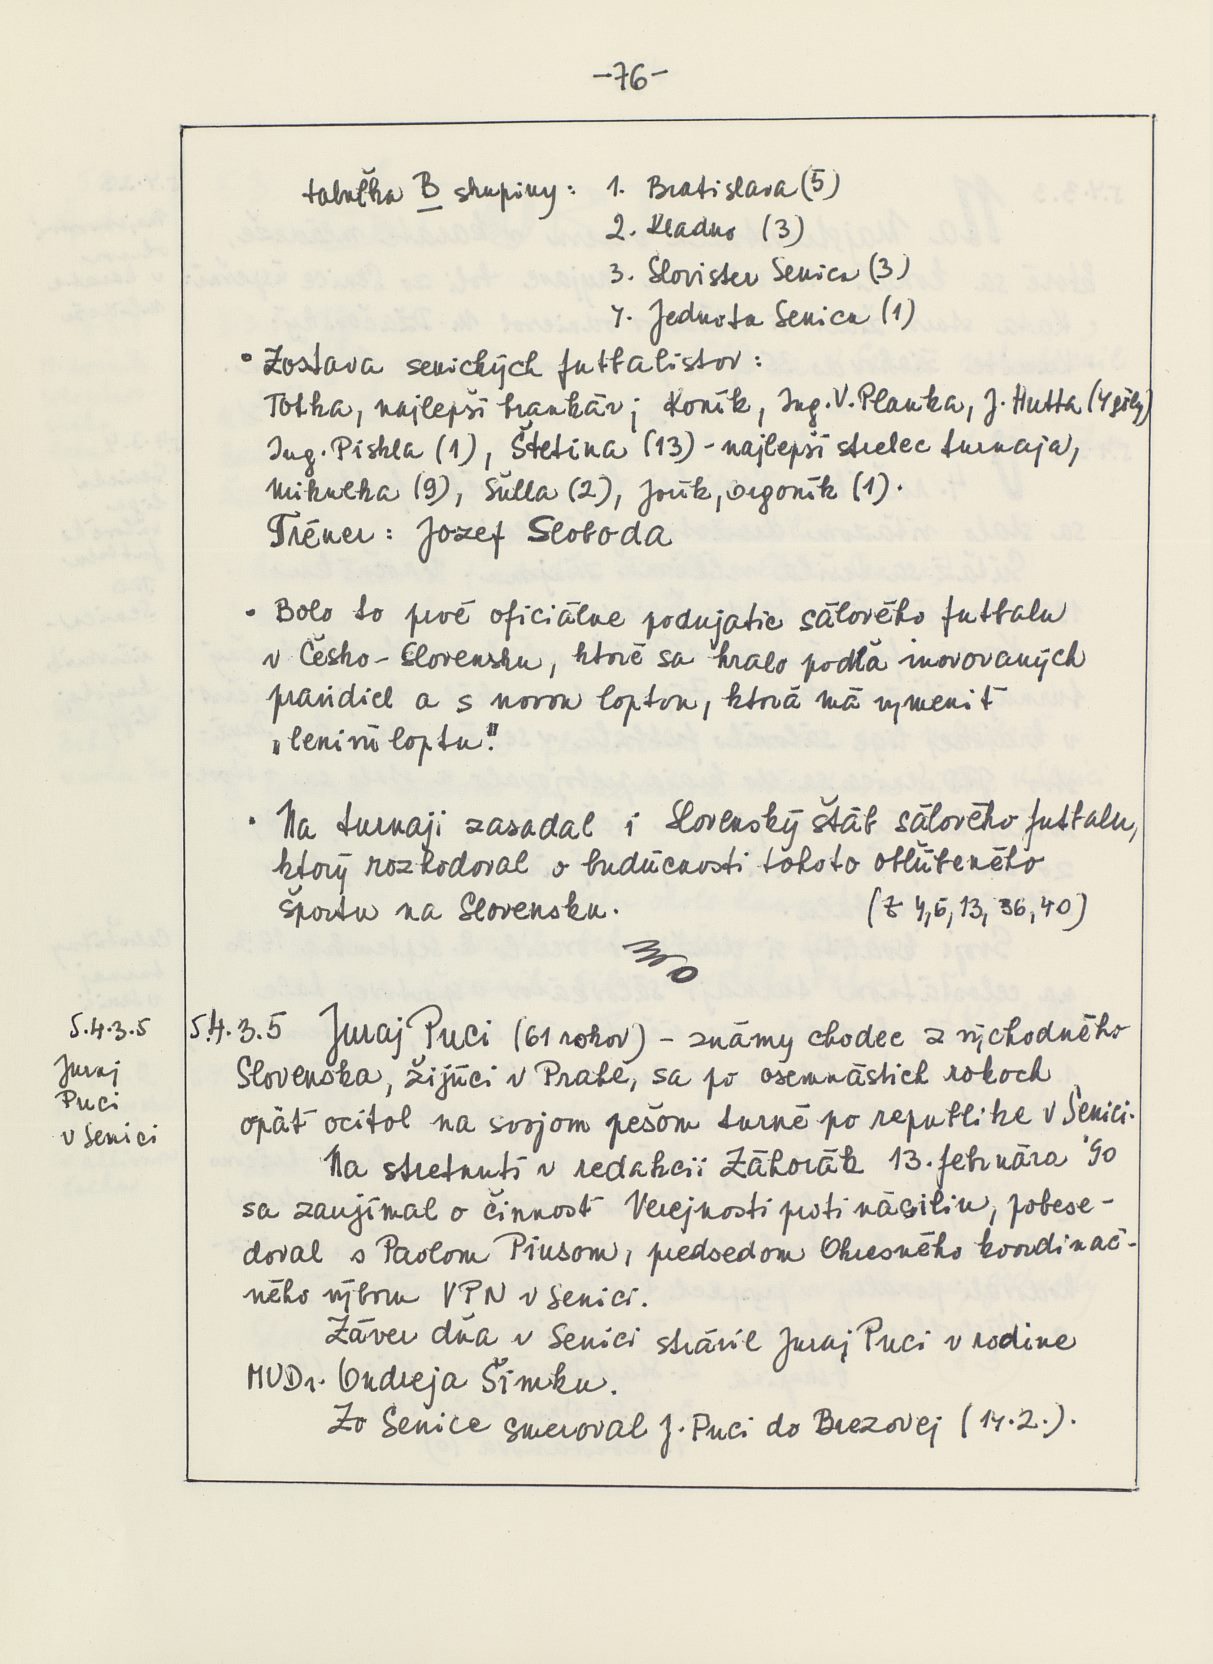 -76-
tabuľka B skupiny: 1. Bratislava (5)
2. Kladno (3)
3. Slovister Senica (3)
4. Jednota Senica (1)
• Zostava senických futbalistov:
Totka, najlepší brankár; Koník, Ing. V. Planka, J. Hutta (4 góly)
Ing. Pishla (1), Štetina (13) - najlepší strelec turnaja,
Mikulka (9), Sulla (2), Jorík, Orgoník (1).
Tréner: Jozef Sloboda
• Bolo to prvé oficiálne podujatie sálového futbalu
v Česko-Slovensku, ktoré sa hralo podľa inovovaných
pravidiel a s novou loptou, ktorá má vymeniť
„lenivú loptu".
• Na turnaji zasadal i Slovenský štáb sálového futbalu,
ktorý rozhodoval o budúcnosti tohoto obľúbeného
športu na Slovensku. (Z 4, 6, 13, 36, 40)
5.4.3.5
Juraj
Puci
v Senici
5.4.3.5 Juraj Puci (61 rokov) - známy chodec z východného
Slovenska, žijúci v Prahe, sa po osemnástich rokoch
opäť ocitol na svojom pešom turné po republike v Senici.
Na stretnutí v redakcii Záhorák 13. februára '90
sa zaujímal o činnosť Verejnosti proti násiliu, pobese-
doval s Pavlom Piusom, predsedom Okresného koordinač-
ného výboru VPN v Senici.
Záver dňa v Senici strávil Juraj Puci v rodine
MUDr. Ondreja Šimku.
Zo Senice smeroval J. Puci do Brezovej (14.2.).